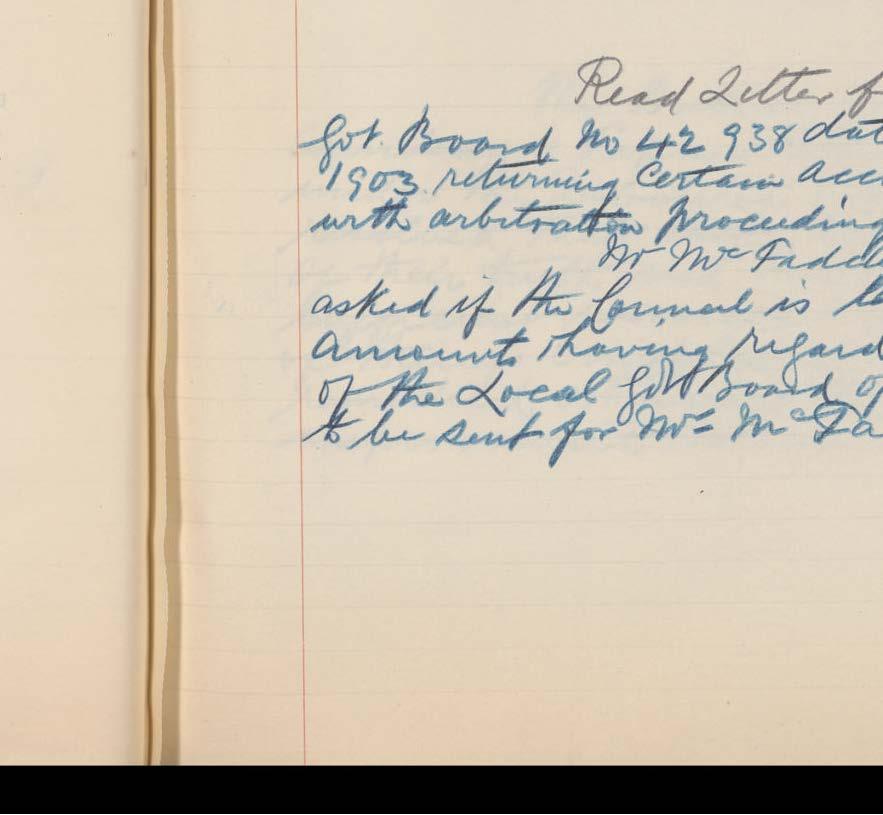 Read Letter f
Govt. Board No 42 938 dat
1903 returning Certain acc
with arbitration proceeding
Mr McFadd
asked if the Council is
Amounts having regard
of the Local Govt Board of
to be sent for Mr McFa